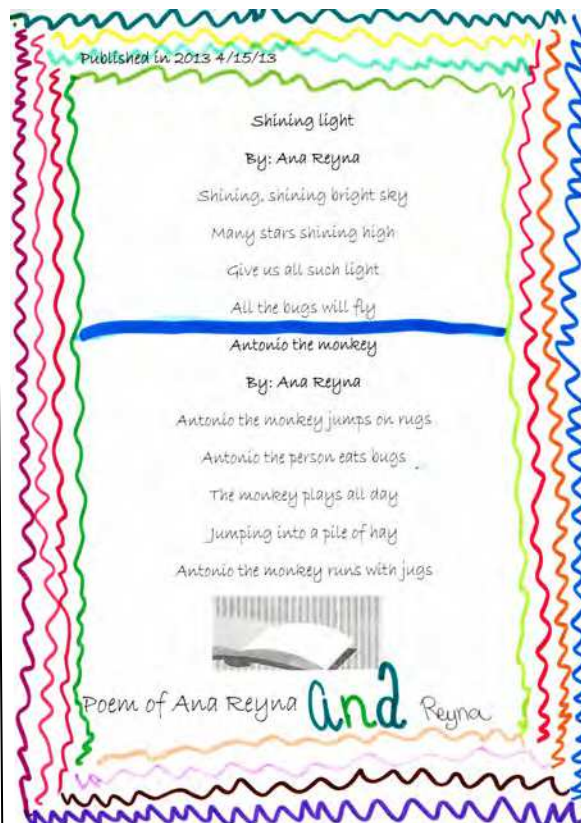 Published in 2013 4/15/13
Shining light
By: Ana Reyna
Shining, shining bright sky
Many stars shining high
Give us all such light
All the bugs will fly
Antonio the monkey
By: Ana Reyna
Antonio the monkey jumps on rugs
Antonio the person eats bugs
The monkey plays all day
Jumping into a pile of hay
Antonio the monkey runs with jugs
Poem of Ana Reyna and Reyna